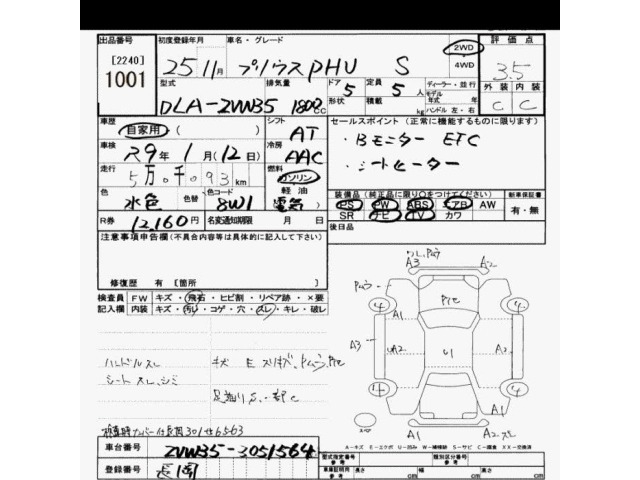 出品番号 初度登録年月 車名・グレード 2WD 4WD 評価点
[2240] 1001
25 11月 プリウスPHV S 3.5
型式 排気量 ドア 定員 ディーラー・並行 外装 内装
DLA-ZVW35 1800cc 5 5人 モデル 年式 年 C C
形状 積載 kg ハンドル 左・右
車歴 シフト セールスポイント(正常に機能するものに限ります)
自家用・( ) AT ・Bモニター ETC
車検 R9年 1月(12日) 冷房 AAC ・シートヒーター
走行 5万0千093km 燃料 ガソリン 軽油 電気
色 水色 色替 色コード 8W1
装備品(純正品に限り○をつけてください) 新車保証書
PS PW ABS エアB AW 有・無
SR ナビ TV カワ
R券 12,160円 名変通知期限 月 日 後日品
注意事項申告欄(不具合内容等は具体的に記入して下さい)
修復歴 有〔箇所
検査員 FW キズ・飛石・ヒビ割・リペア跡・×要
記入欄 内装 キズ・汚レ・コゲ・穴・スレ・キレ・破レ
ハンドルスレ
シートスレ、シミ
301せ6563
A3 A2
A1 A1
A3 A2 U1 A2
A1 A1 A2
4 4 4 4
スペア
A-キズ E-エクボ U-凹み W-補修跡 S-サビ C-腐食 XX-交換済
車台番号 ZVW35-3051564
登録番号 長岡
型式指定番号 参考 類別区分番号 参考
車庫証明用 参考 長さ cm 幅 cm 高さ cm